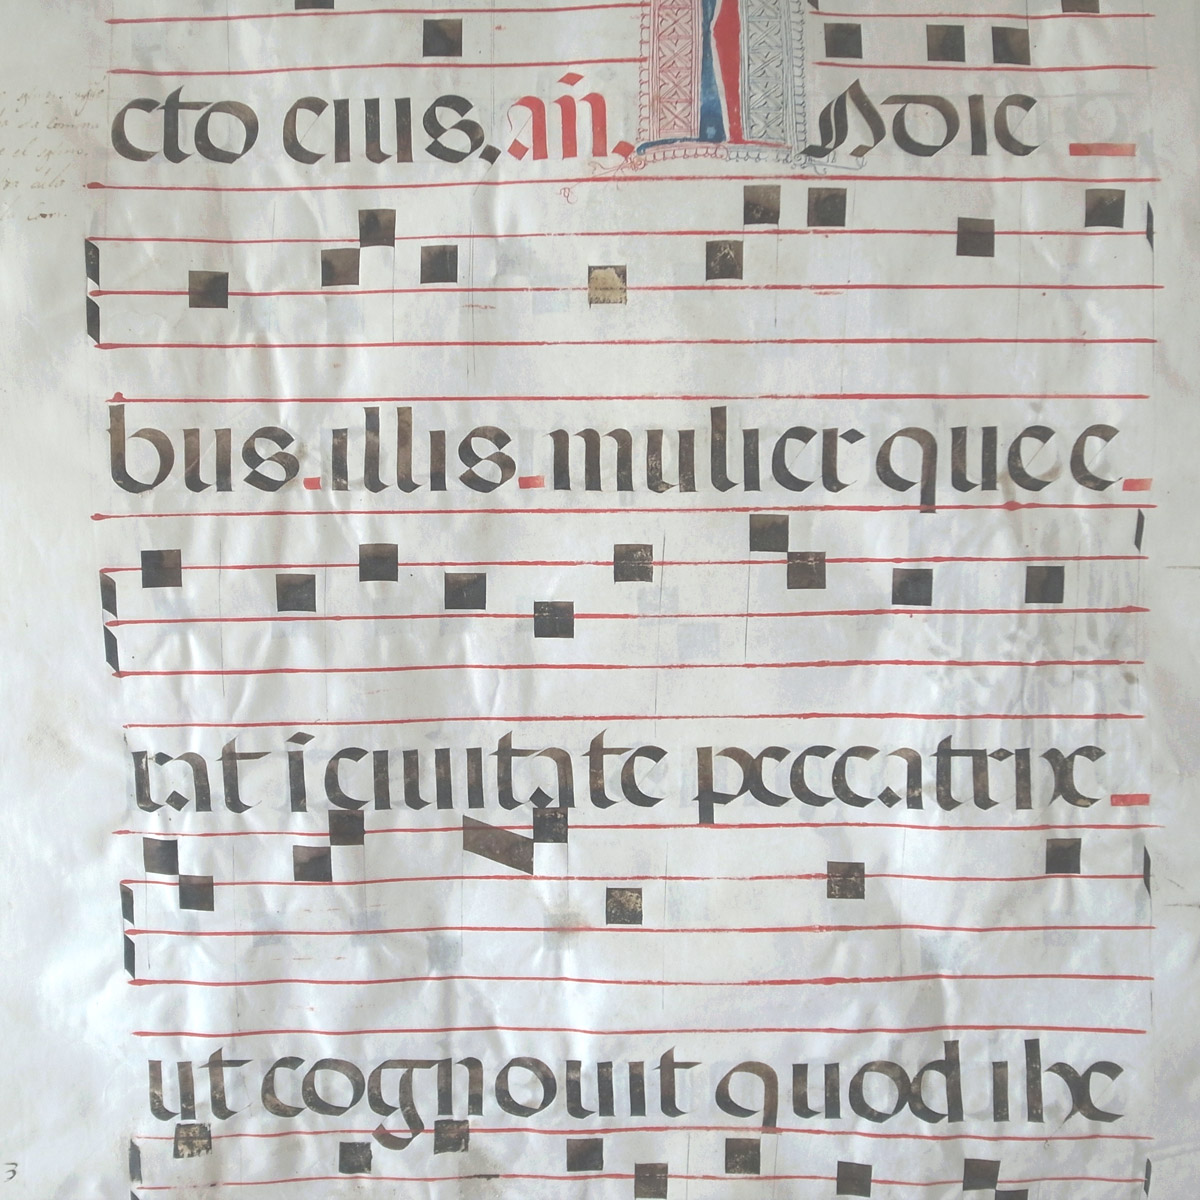 cto eius. añ. Indie
bus illis mulier que e
rat ī ciuitate peccatrix
ut cognouit quod ihc
3